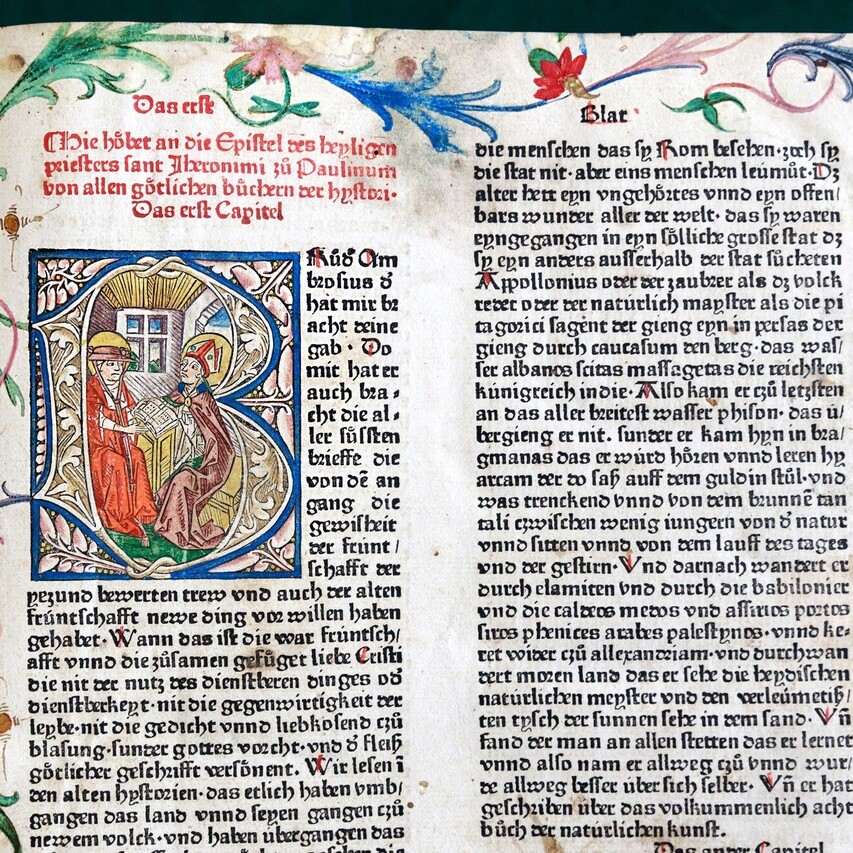 Das erst
Hie hôbet an die Epistel des heyligen
priesters sant Jheronimi zů Paulinum
von allen gôtlichen bůchern der hystori·
Das erst Capitel
BRůd̄ Am
brosius d̄
hat mir br
acht deine
gab · Do
mit hat er
auch bra⸗
cht die al⸗
ler sůssten
brieffe die
von dē an
gang die
gewisheit
der frunt /
schafft der
yezund bewerten trew vnd auch der alten
fruntschafft newe ding vor willen haben
gehabet· Wann das ist die war fruntsch/
afft vnnd die zůsamen gefůget liebe Cristi
die nit der nutz des dienstberen dinges od̄
dienstberkeyt·nit die gegenwirtigkeit der
leybe·nit die gedicht vnnd liebkosend czů
blasung·sunder gottes vorcht·vnd d̄ fleiß
gôtlicher geschrifft versônent. Wir lesen ī
den alten hystorien·das etlich haben vmb/
gangen das land vnnd seyen gangen czů
newem volck·vnd haben ůbergangen das
Blat
die menschen das sy Rom besehen·zoch sy
die stat nit·aber eins menschen leůmůt·Dz
alter hett eyn vngehôrtes vnnd eyn offen/
bars wunder aller der welt·das sy waren
eyngegangen in eyn sôlliche grosse stat dz
sy eyn anders ausserhalb der stat sůcheten
Appollonius oder der zaubrer als dz volck
redet oder der natůrlich mayster als die pi
tagorici sagent der gieng eyn in persas der
gieng durch caucasum den berg·das was/
ser albanos scitas massagetas die reichsten
kůnigreich indie·Also kam er czů letzsten
an das aller breitest wasser phison·das ů/
bergieng er nit. sunder er kam hyn in bra/
gmanas das er wůrd hôren vnnd leren hy
arcam der do saß auff dem guldin stůl·vnd
was trenckend vnnd von dem brunnē tan
tali czwischen wenig iungern von d̄ natur
vnnd sitten vnnd von dem lauff des tages
vnd der gestirn·Vnd darnach wandert er
durch elamiten vnd durch die babilonier
vnd die caldeos medos vnd assirios partos
siros phenices arabes palestynos·vnnd ke⸗
ret wider czů allexandriam·vnd durchwan
dert moren land das er sehe die heydischen
natůrlichen meyster vnd den verleůmetiß/
ten tysch der sunnen sehe in dem sand·Vn̄
fand der man an allen stetten das er lernet
vnnd also nam er allweg czů vnnd wur/
de allweg besser ůber sich selber·Vn̄ er hat
geschriben ůber das volkummenlich acht
bůch der natůrlichen kunst.
Das ander Capitel